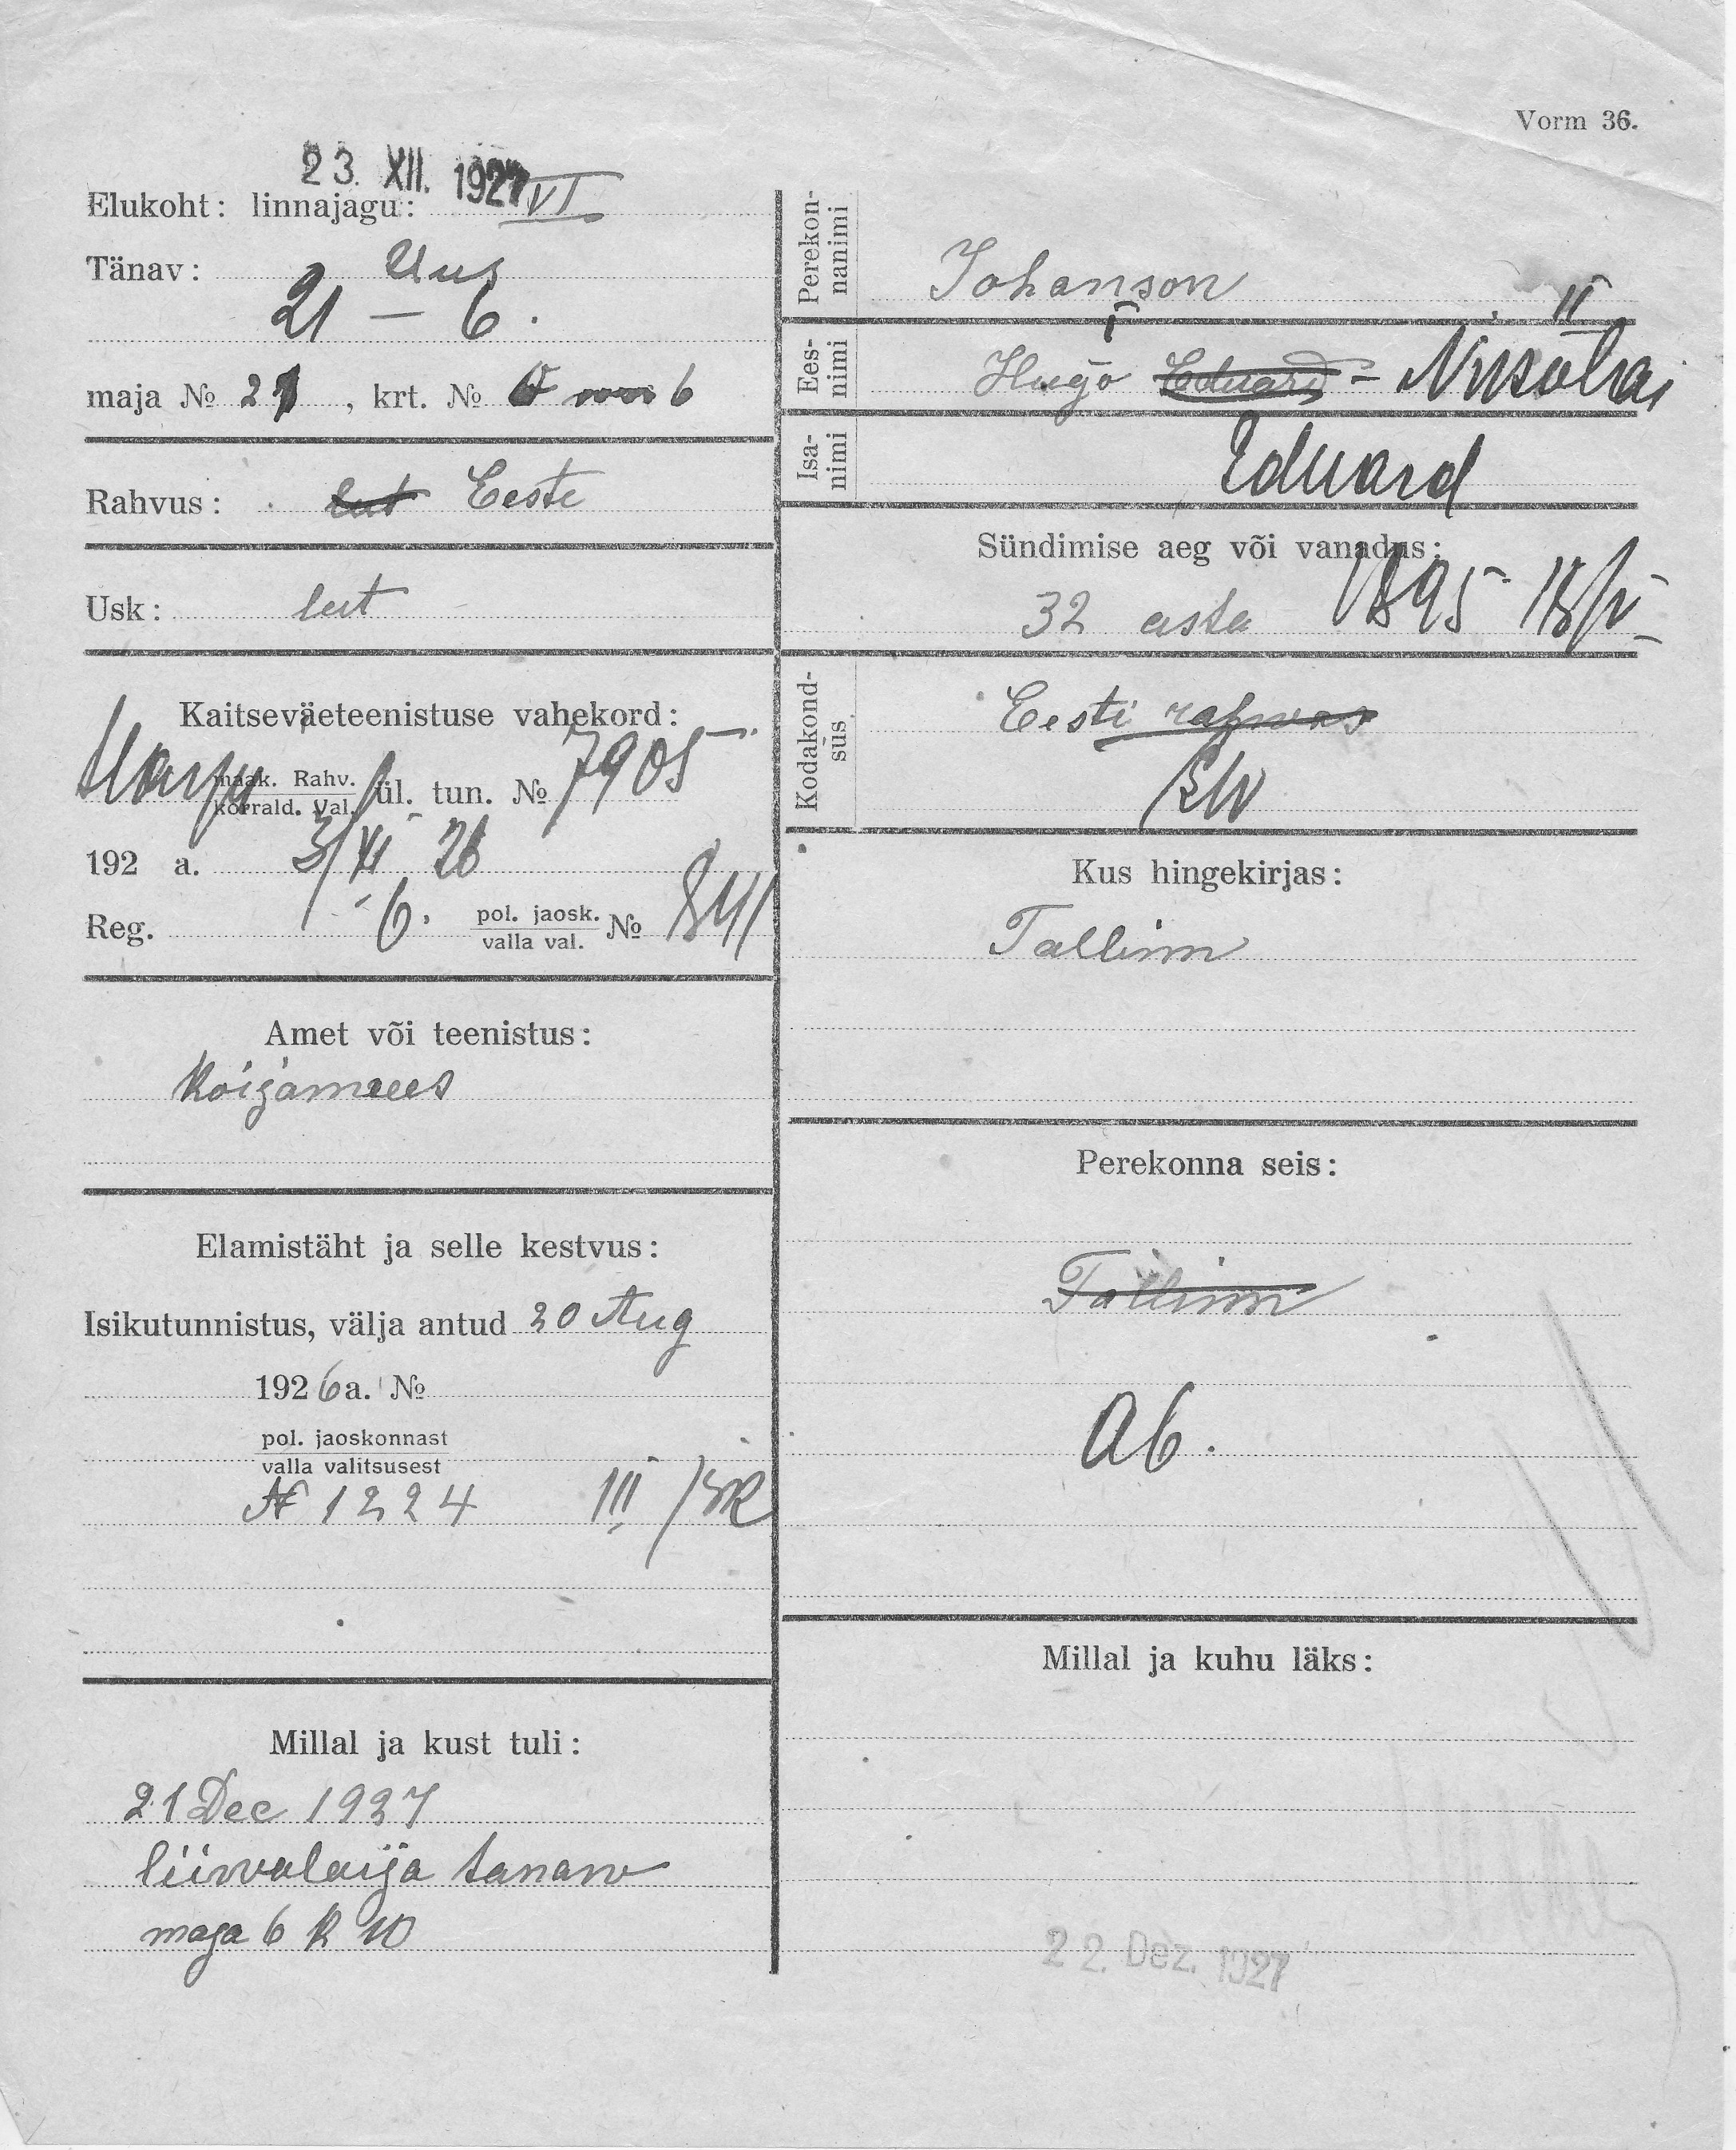 Vorm 36.
23. XII. 1927
Elukoht: linnajagu: VI
Tänav: Uus
21 – 6.
maja № 21, krt. № 6
Rahvus: lut Eeste
Usk: lut
Kaitseväeteenistuse vahekord:
Harju maak. Rahv. ül. tun. № 7905
korrald. Val.
192 a. 3/XI 26
Reg. 6. pol. jaosk. № 841
valla val.
Amet või teenistus:
Koijamees
Elamistäht ja selle kestvus:
Isikutunnistus, välja antud 20 Aug
1926 a. №
pol. jaoskonnast
valla valitsusest
N 1224 III
Millal ja kust tuli:
21 Dec 1927
liiwalaija tanaw
maja 6 k 10
Perekonnanimi
Johanson
I II
Eesnimi
Hugo Eduard - Nikolai
Isanimi
Eduard
Sündimise aeg või vanadus:
32 asta 1895 18/V
Kodakondsus
Eesti rahwas
EW
Kus hingekirjas:
Tallinn
Perekonna seis:
Tallinn
Ab.
Millal ja kuhu läks:
22. Dez. 1927